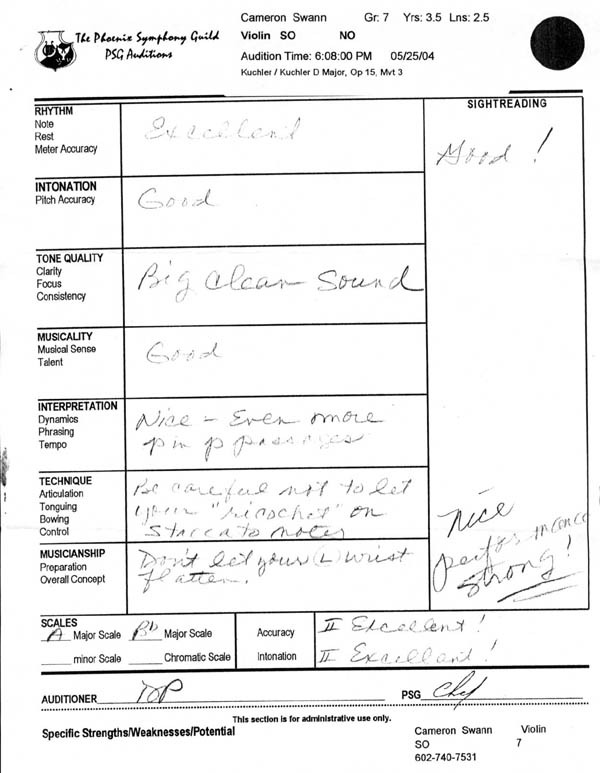 The Phoenix Symphony Guild
PSG Auditions
Cameron Swann Gr: 7 Yrs: 3.5 Lns: 2.5
Violin SO NO
Audition Time: 6:08:00 PM 05/25/04
Kuchler / Kuchler D Major, Op 15, Mvt 3
RHYTHM
Note
Rest
Meter Accuracy
Excellent
SIGHTREADING
Good !
INTONATION
Pitch Accuracy
Good
TONE QUALITY
Clarity
Focus
Consistency
Big clean sound
MUSICALITY
Musical Sense
Talent
Good
INTERPRETATION
Dynamics
Phrasing
Tempo
Nice - Even more
p in p passages
TECHNIQUE
Articulation
Tonguing
Bowing
Control
Be careful not to let
your "ricochet" on
staccato notes
MUSICIANSHIP
Preparation
Overall Concept
Don't let your (L) wrist
flatten.
Nice
performance
strong!
SCALES
A Major Scale Bb Major Scale
minor Scale Chromatic Scale
Accuracy II Excellent!
Intonation II Excellent!
AUDITIONER
PSG
This section is for administrative use only.
Specific Strengths/Weaknesses/Potential
Cameron Swann Violin
SO 7
602-740-7531